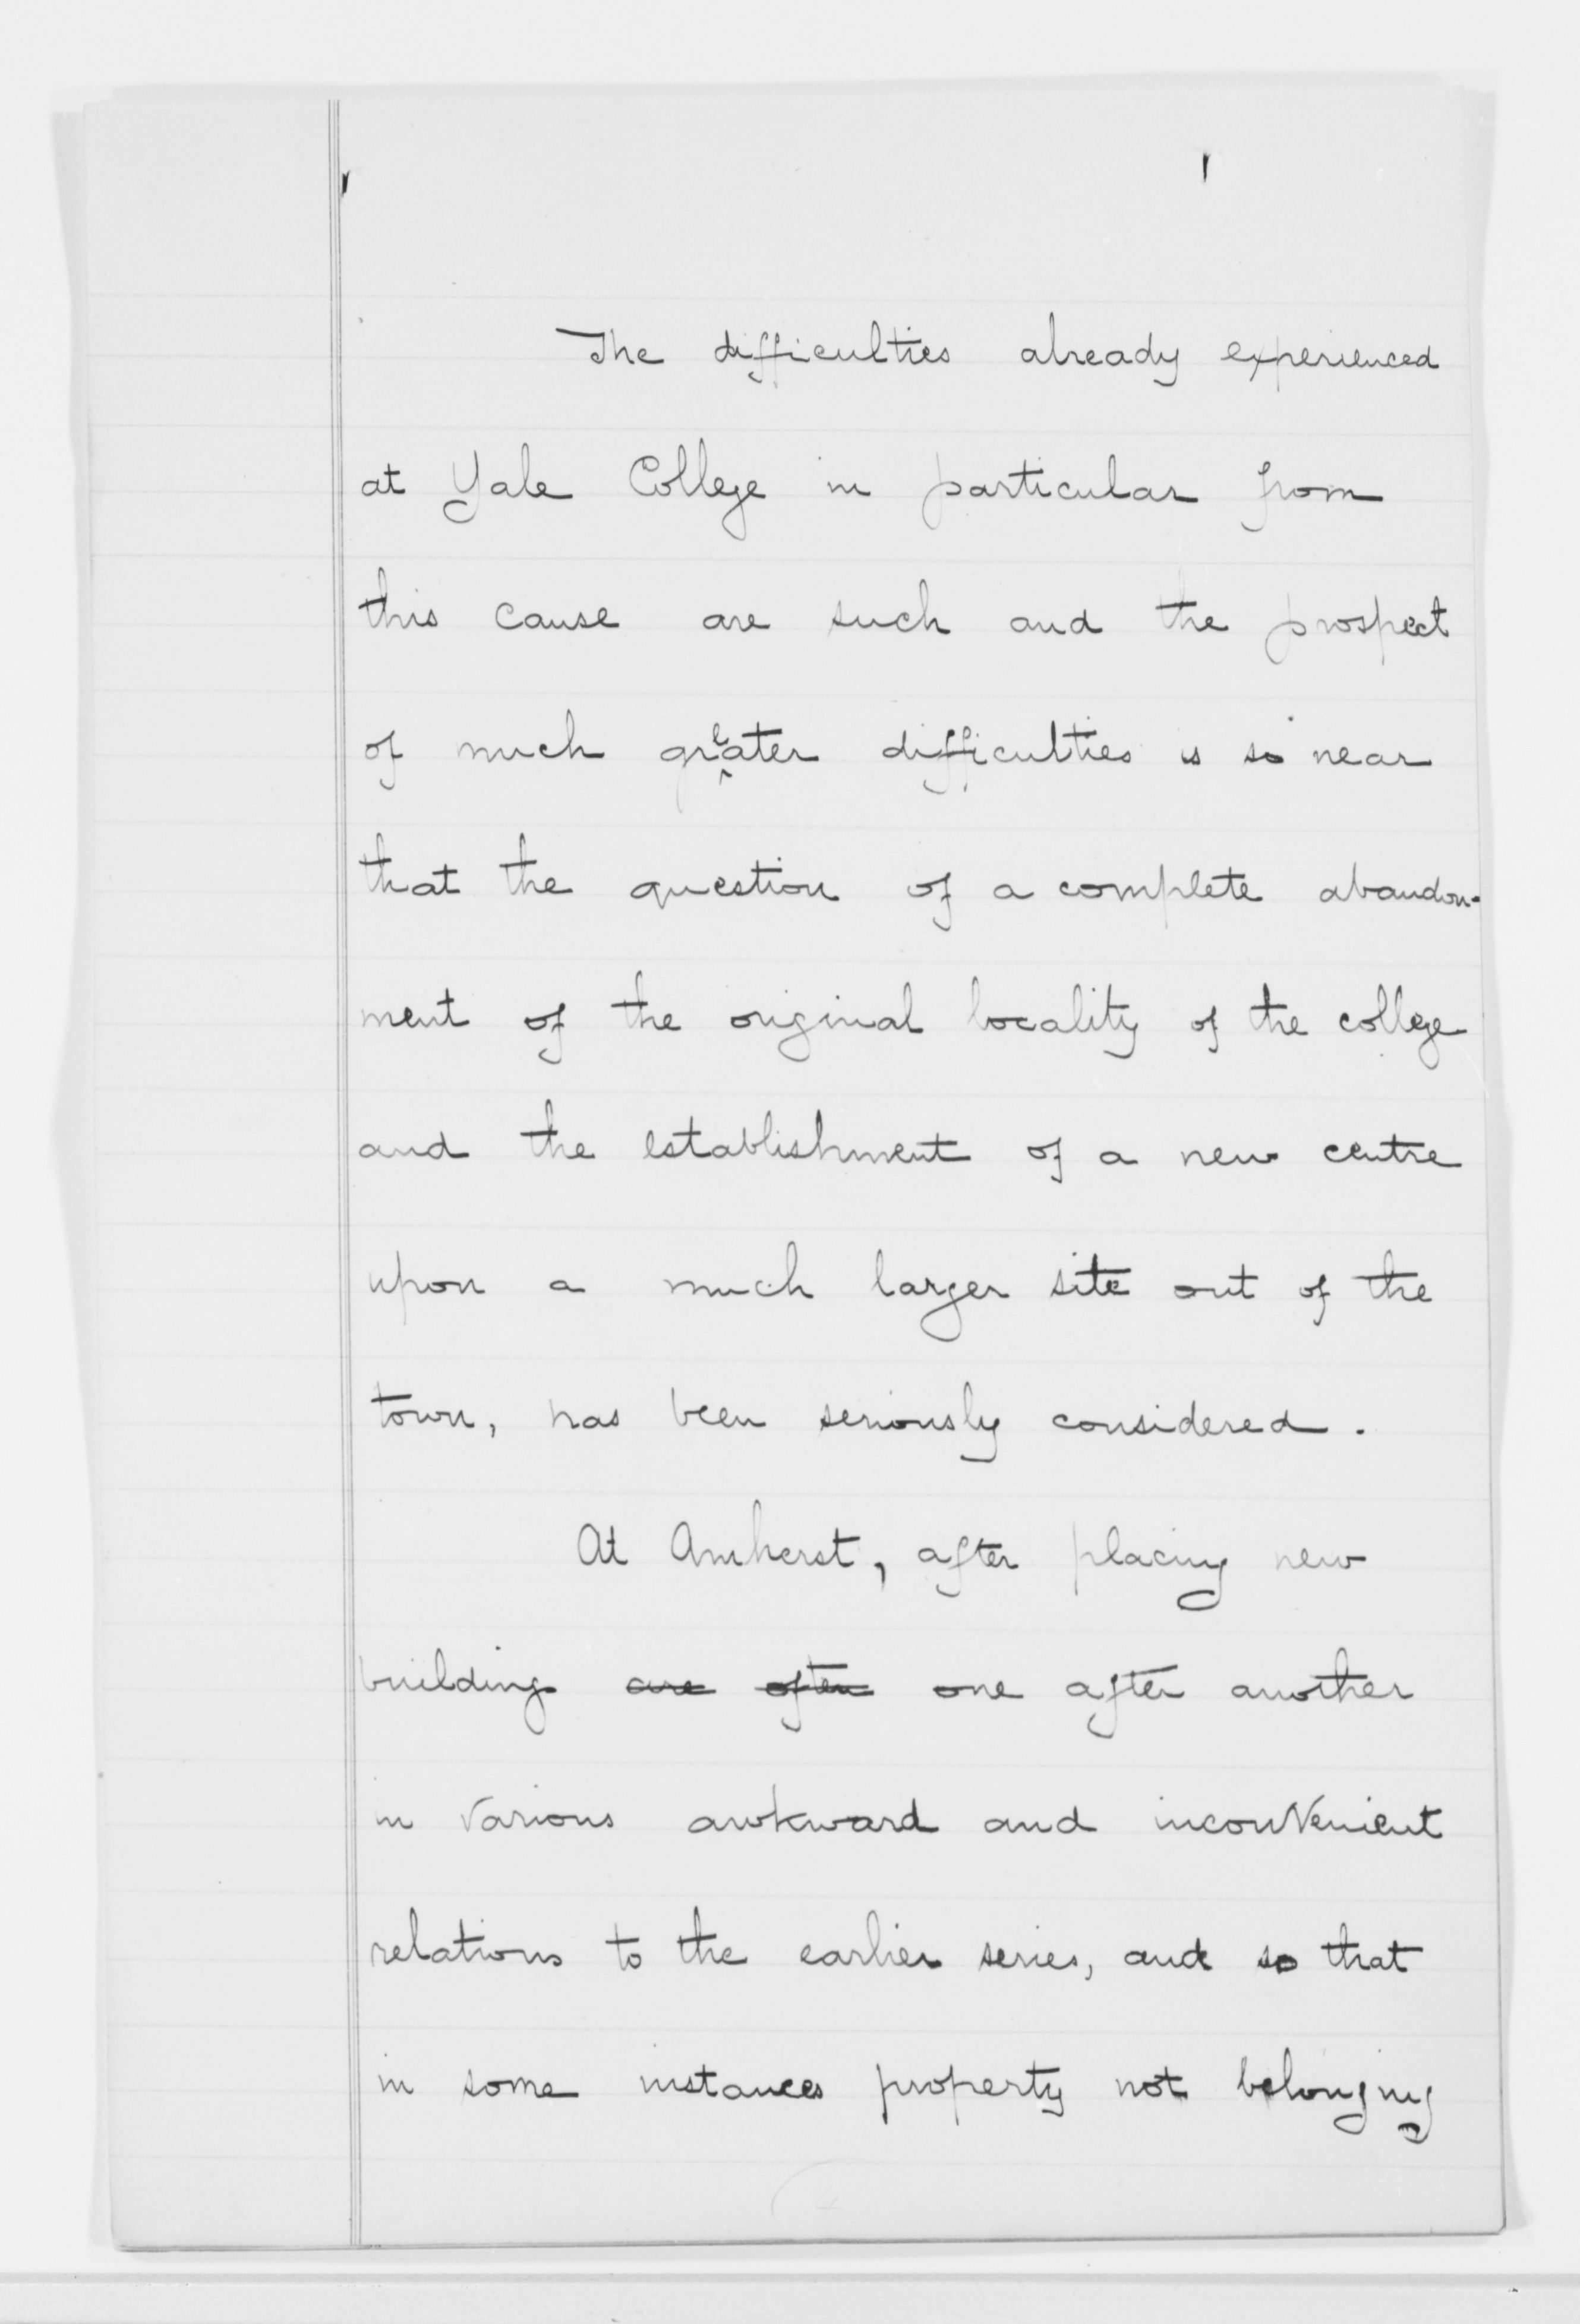 The difficulties already experienced
at Yale College in particular from
this cause are such and the prospect
of much greater difficulties is so near
that the question of a complete abandon-
ment of the original locality of the college
and the establishment of a new centre
upon a much larger site out of the
town, has been seriously considered.
At Amherst, after placing new
building are often one after another
in various awkward and inconvenient
relations to the earlier series, and so that
in some instances property not belonging